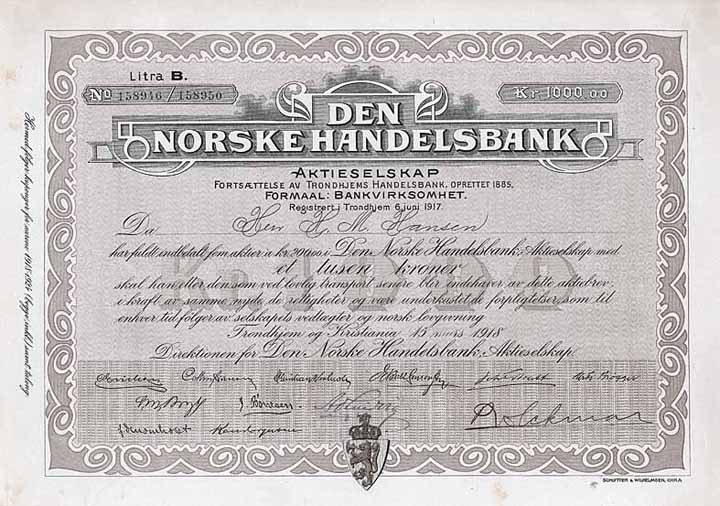 Litra B.
No 158946/158950
Kr. 1000 00
DEN
NORSKE HANDELSBANK
AKTIESELSKAP
FORTSÆTTELSE AV TRONDHJEMS HANDELSBANK. OPRETTET 1885.
FORMAAL: BANKVIRKSOMHET.
Registrert i Trondhjem 6 juni 1917.
Da Herr H. M. Hansen
har fuldt indbetalt fem aktier à kr. 200.00 i Den Norske Handelsbank, Aktieselskap med
et tusen kroner
skal han eller den som ved lovlig transport senere blir indehaver av dette aktiebrev,
i kraft av samme nyde de rettigheter og være underkastet de forpligtelser, som til
enhver tid følger av selskapets vedtægter og norsk lovgivning
Trondhjem og Kristiania 15 mars 1918
Direktionen for Den Norske Handelsbank, Aktieselskap.
SCHUTTER & WILHELMSEN, CHRA